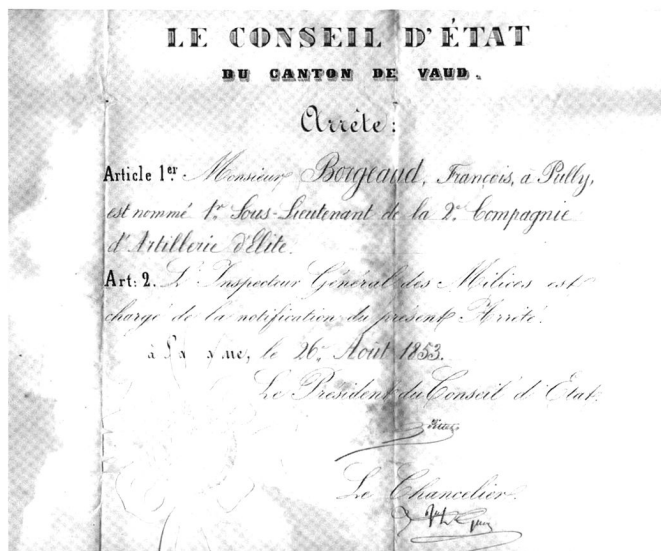 LE CONSEIL D'ÉTAT
DU CANTON DE VAUD.
Arrête:
Article 1er. Monsieur Borgeaud, François, à Pully,
est nommé 1er Sous-Lieutenant de la 2e Compagnie
d'Artillerie d'Elite.
Art: 2. L'Inspecteur Général des Milices est
chargé de la notification du présent Arrêté.
à le 26e Août 1853.
Le Président du Conseil d'Etat.
Le Chancelier.